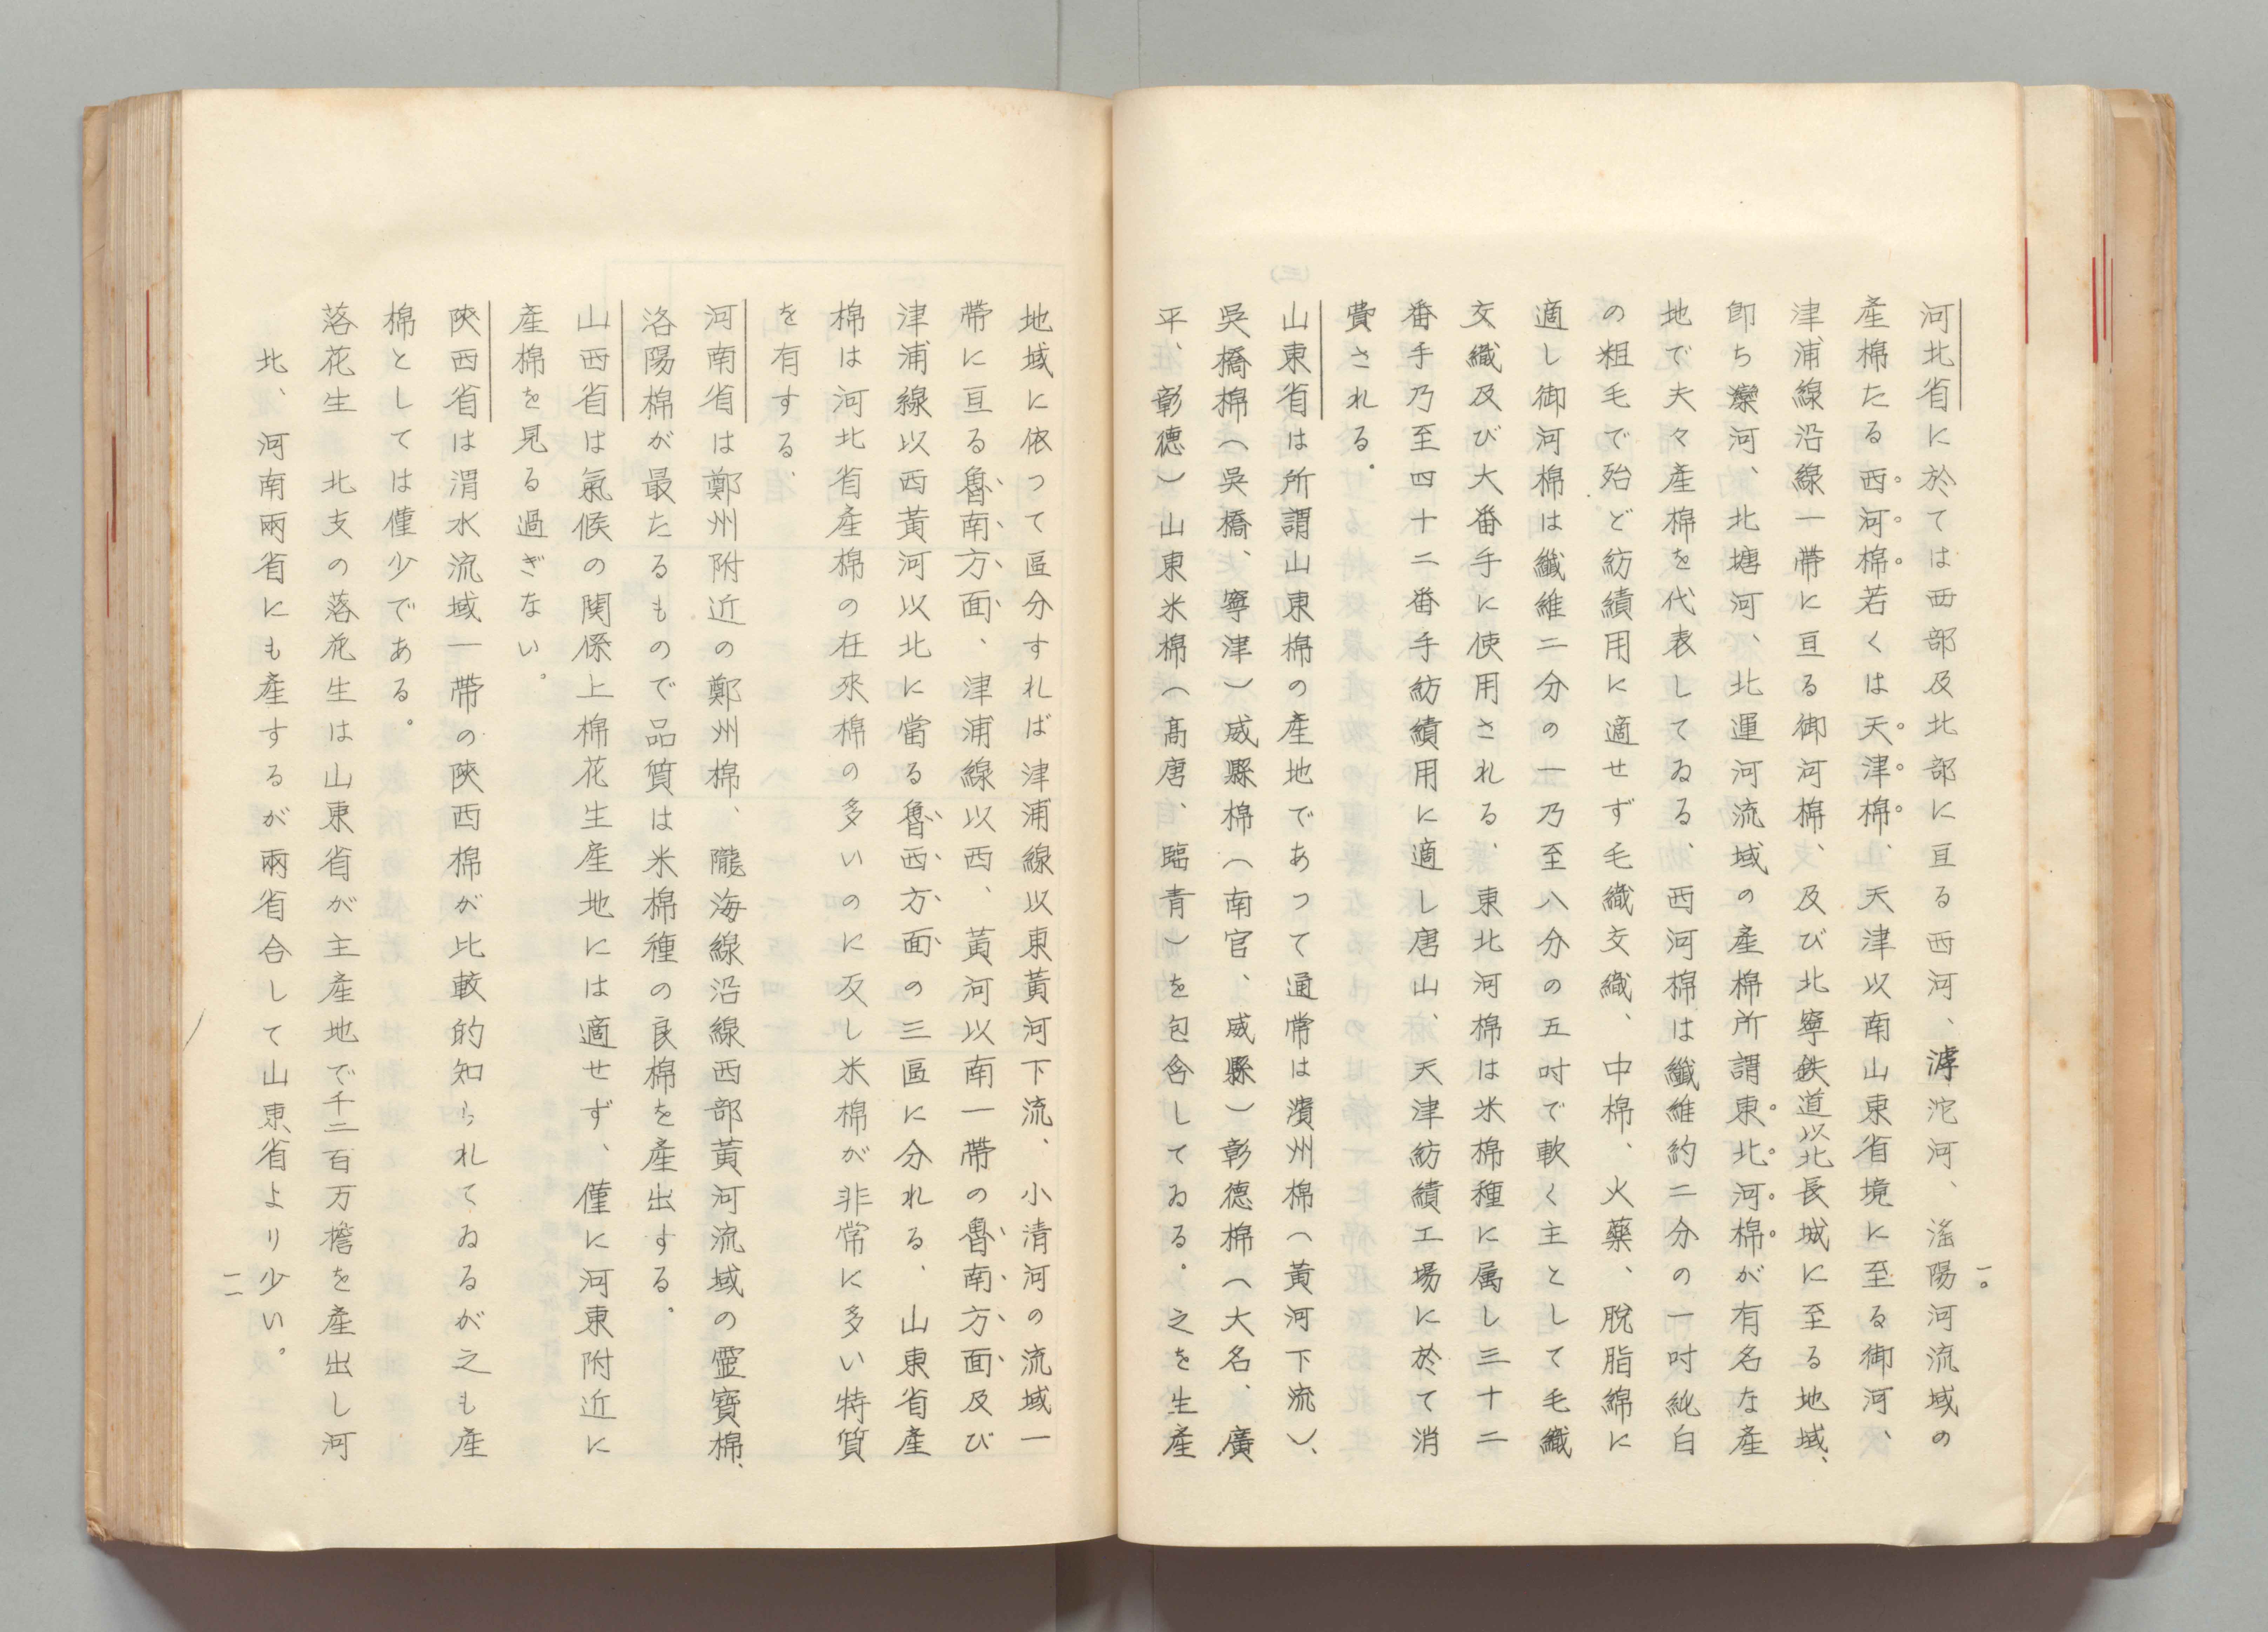 一〇
河北省に於ては西部及北部に亘る西河、滹沱河、滏陽河流域の
産棉たる西河棉若くは天津棉、天津以南山東省境に至る御河、
津浦線沿線一帶に亘る御河棉、及び北寧鉄道以北長城に至る地域、
卽ち灤河、北塘河、北運河流域の産棉所謂東北河棉が有名な産
地で夫々産棉を代表してゐる、西河棉は纖維約二分の一吋純白
の粗毛で殆ど紡績用に適せず毛織交織、中棉、火藥、脫脂綿に
適し御河棉は纖維二分の一乃至八分の五吋で軟く主として毛織
交織及び大番手に使用される、東北河棉は米棉種に属し三十二
番手乃至四十二番手紡績用に適し唐山、天津紡績工場に於て消
費される。
山東省は所謂山東棉の産地であつて通常は濱州棉（黃河下流）、
吳橋棉（吳橋、寧津）威縣棉（南宮、威縣）彰德棉（大名、廣
平、彰德）山東米棉（髙唐、臨青）を包含してゐる。之を生産
地域に依つて區分すれば津浦線以東黃河下流、小清河の流域一
帶に亘る魯南方面、津浦線以西、黃河以南一帶の魯南方面及び
津浦線以西黃河以北に當る魯西方面の三區に分れる、山東省産
棉は河北省産棉の在來棉の多いのに反し米棉が非常に多い特質
を有する、
河南省は鄭州附近の鄭州棉、隴海線沿線西部黃河流域の靈寶棉、
洛陽棉が最たるもので品質は米棉種の良棉を産出する。
山西省は氣候の関係上棉花生産地には適せず、僅に河東附近に
産棉を見る過ぎない。
陝西省は渭水流域一帶の陝西棉が比較的知られてゐるが之も産
棉としては僅少である。
落花生　北支の落花生は山東省が主産地で千二百万擔を産出し河
北、河南兩省にも産するが兩省合して山東省より少い。
一一